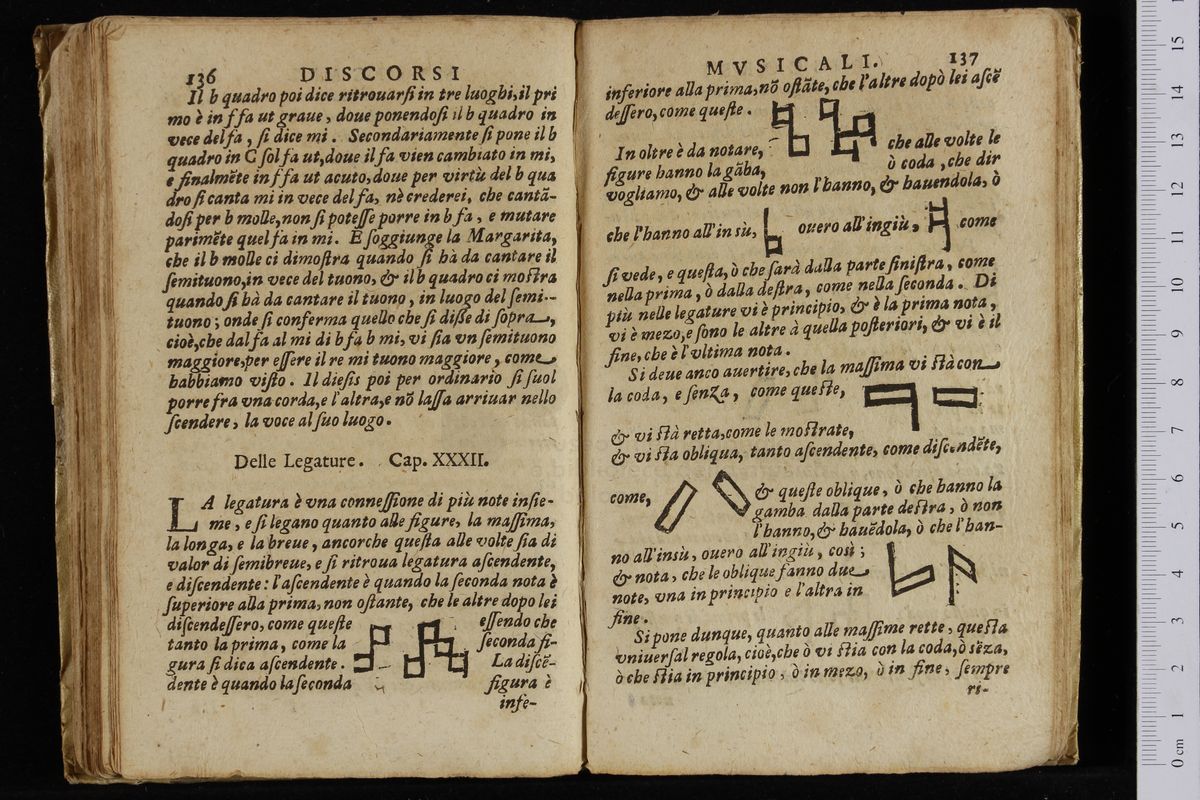 136 DISCORSI
Il b quadro poi dice ritrouarſi in tre luoghi, il pri
mo è in f fa ut graue, doue ponendoſi il b quadro in
vece del fa, ſi dice mi. Secondariamente ſi pone il b
quadro in C ſol fa ut, doue il fa vien cambiato in mi,
e finalmẽte in f fa ut acuto, doue per virtù del b qua
dro ſi canta mi in vece del fa, nè crederei, che cantã-
doſi per b molle, non ſi poteſſe porre in b fa, e mutare
parimẽte quel fa in mi. E ſoggiunge la Margarita,
che il b molle ci dimoſtra quando ſi hà da cantare il
ſemituono, in vece del tuono, & il b quadro ci moſtra
quando ſi hà da cantare il tuono, in luogo del ſemi-
tuono; onde ſi conferma quello che ſi diße di ſopra,
cioè, che dal fa al mi di b fa b mi, vi ſia vn ſemituono
maggiore, per eſſere il re mi tuono maggiore, come
habbiamo viſto. Il dieſis poi per ordinario ſi ſuol
porre fra vna corda, e l'altra, e nõ laſſa arriuar nello
ſcendere, la voce al ſuo luogo.
Delle Legature. Cap. XXXII.
LA legatura è vna conneſſione di più note inſie-
me, e ſi legano quanto alle figure, la maſſima,
la longa, e la breue, ancorche queſta alle volte ſia di
valor di ſemibreue, e ſi ritroua legatura aſcendente,
e diſcendente: l'aſcendente è quando la ſeconda nota è
ſuperiore alla prima, non oſtante, che le altre dopo lei
diſcendeſſero, come queſte eſſendo che
tanto la prima, come la ſeconda fi-
gura ſi dica aſcendente. La diſcẽ-
dente è quando la ſeconda figura è
infe-
MVSICALI. 137
inferiore alla prima, nõ oſtãte, che l'altre dopò lei aſcẽ
deſſero, come queſte.
In oltre è da notare, che alle volte le
figure hanno la gãba, ò coda, che dir
vogliamo, & alle volte non l'hanno, & hauendola, ò
che l'hanno all'in sù, ouero all'ingiù, come
ſi vede, e queſta, ò che ſarà dalla parte ſiniſtra, come
nella prima, ò dalla deſtra, come nella ſeconda. Di
più nelle legature vi è principio, & è la prima nota,
vi è mezo, e ſono le altre à quella poſteriori, & vi è il
fine, che è l'vltima nota.
Si deue anco auertire, che la maſſima vi ſtà con
la coda, e ſenza, come queſte,
& vi ſtà retta, come le moſtrate,
& vi ſta obliqua, tanto aſcendente, come diſcendẽte,
come, & queſte oblique, ò che hanno la
gamba dalla parte deſtra, ò non
l'hanno, & hauẽdola, ò che l'han-
no all'insù, ouero all'ingiù, così;
& nota, che le oblique fanno due
note, vna in principio e l'altra in
fine.
Si pone dunque, quanto alle maſſime rette, queſta
vniuerſal regola, cioè, che ò vi ſtia con la coda, ò sẽza,
ò che ſtia in principio, ò in mezo, ò in fine, ſempre
ri-
0 cm 1 2 3 4 5 6 7 8 9 10 11 12 13 14 15